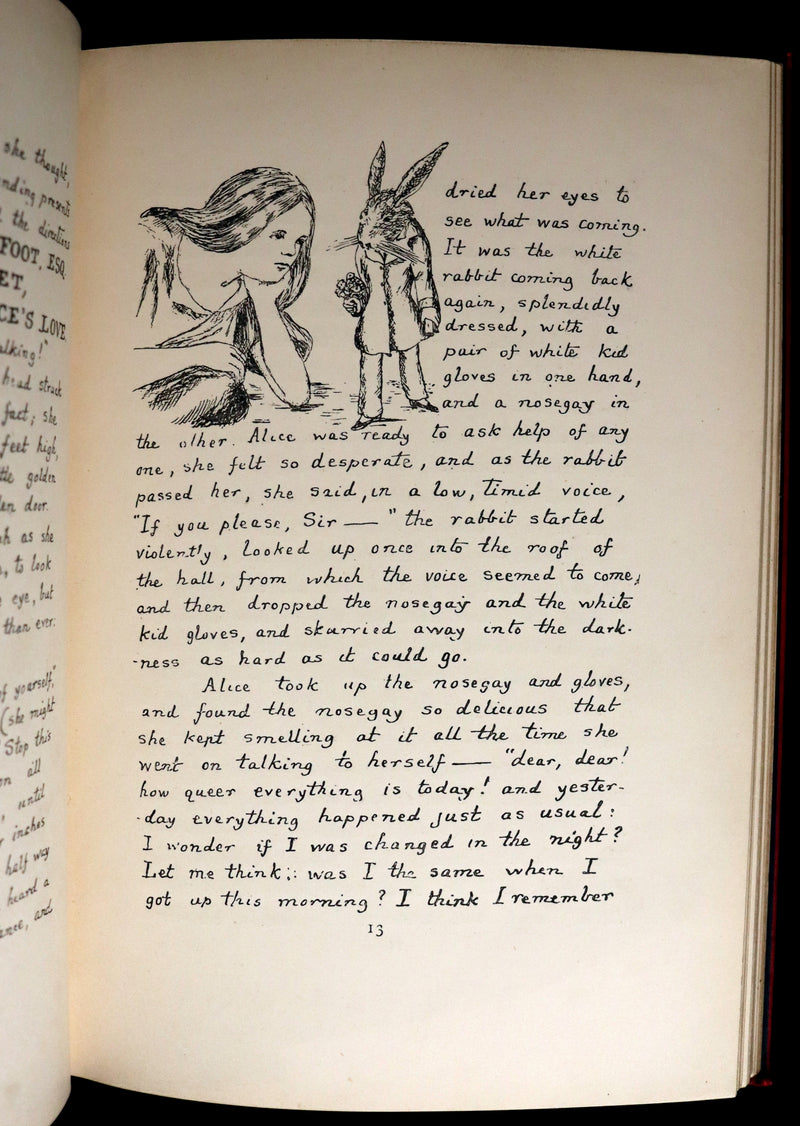 she thought,
nding presents
the directions
FOOT, ESQ
ET,
CE'S LOVE
alking!"
head struck
fact; she
feet high,
the golden
en door.
as she
, to look
eye, but
than ever:
of yourself,"
(she might
"Stop this
on all
until
inches
half way
heard a
ance, and
dried her eyes to
see what was coming.
It was the white
rabbit coming back
again, splendidly
dressed, with a
pair of white kid
gloves in one hand,
and a nosegay in
the other. Alice was ready to ask help of any
one, she felt so desperate, and as the rabbit
passed her, she said, in a low, timid voice,
"If you please, Sir — " the rabbit started
violently, looked up once into the roof of
the hall, from which the voice seemed to come,
and then dropped the nosegay and the white
kid gloves, and skurried away into the dark-
-ness as hard as it could go.
Alice took up the nosegay and gloves,
and found the nosegay so delicious that
she kept smelling at it all the time she
went on talking to herself — "dear, dear!
how queer everything is today! and yester-
-day everything happened just as usual:
I wonder if I was changed in the night?
Let me think: was I the same when I
got up this morning? I think I remember
13